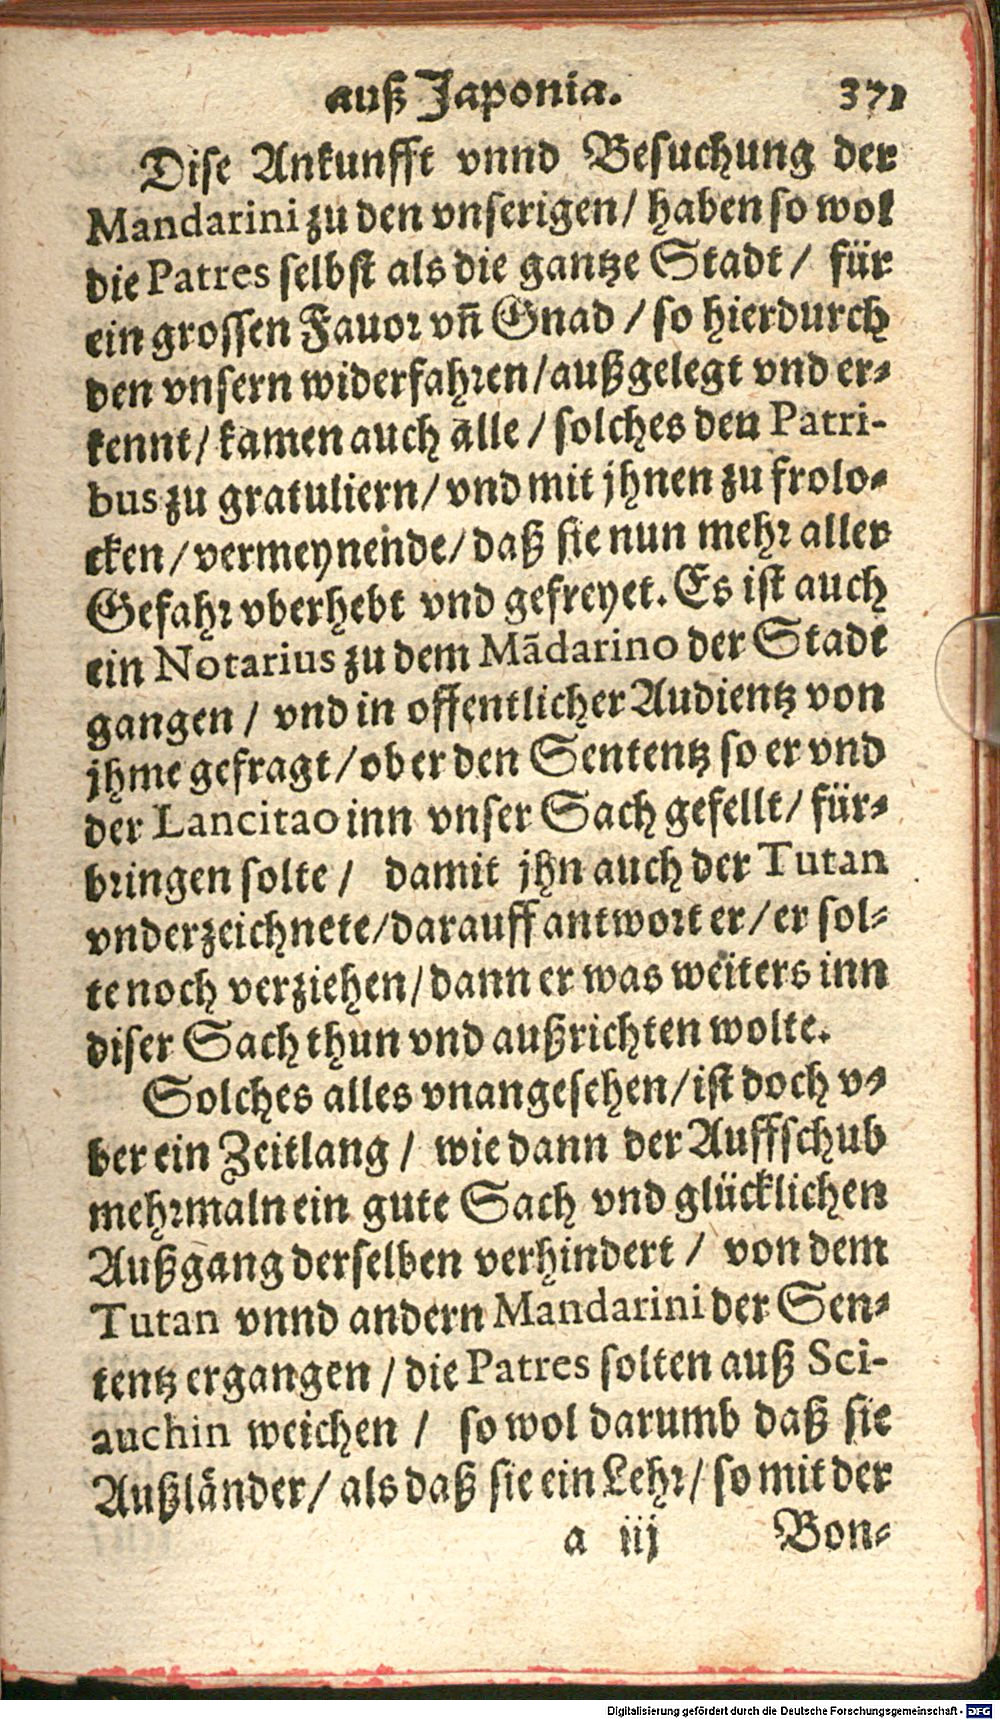 auß Japonia. 371
Dise Ankunfft vnnd Besuchung der
Mandarini zu den vnserigen/ haben so wol
die Patres selbst als die gantze Stadt/ für
ein grossen Fauor vn̄ Gnad / so hierdurch
den vnsern widerfahren/außgelegt vnd er-
kennt/ kamen auch alle / solches den Patri-
bus zu gratuliern/ vnd mit jhnen zu frolo-
cken / vermeynende/ daß sie nun mehr aller
Gefahr vberhebt vnd gefreyet. Es ist auch
ein Notarius zu dem Mādarino der Stadt
gangen / vnd in offentlicher Audientz von
jhme gefragt/ ob er den Sententz so er vnd
der Lancitao inn vnser Sach gefellt/ für-
bringen solte / damit jhn auch der Tutan
vnderzeichnete/darauff antwort er/ er sol-
te noch verziehen/ dann er was weiters inn
diser Sach thun vnd außrichten wolte.
Solches alles vnangesehen/ ist doch v-
ber ein Zeitlang / wie dann der Auffschub
mehrmaln ein gute Sach vnd glücklichen
Außgang derselben verhindert / von dem
Tutan vnnd andern Mandarini der Sen-
tentz ergangen / die Patres solten auß Sci-
auchin weichen / so wol darumb daß sie
Außländer/ als daß sie ein Lehr/ so mit der
a iij Bon-
Digitalisierung gefördert durch die Deutsche Forschungsgemeinschaft - DFG